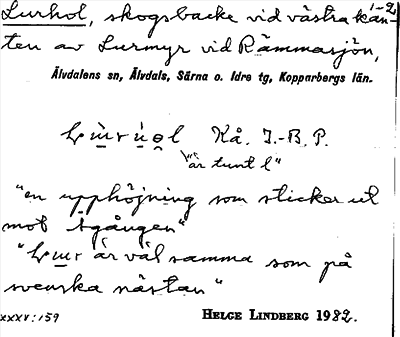 1-2
Lurhol, skogsbacke vid västra kan-
ten av Lurmyr vid Rämmasjön,
Älvdalens sn, Älvdals, Särna o. Idre tg, Kopparbergs län.
Kå. J.-B. P.
"är tunt l"
"en upphöjning som sticker ut
mot tgången"
är väl samma som på
svenska nästan"
xxxv:159 HELGE LINDBERG 1982.